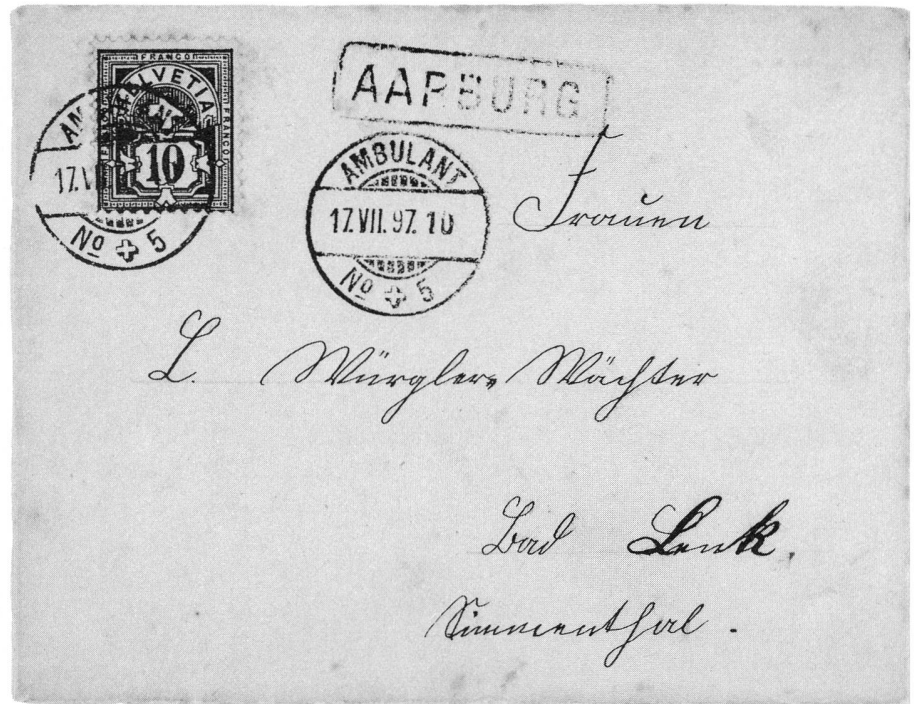 FRANCO
HELVETIA
FRANCO
10
AM
17.VI
No 5
AARBURG
AMBULANT
17.VII.97.10
No 5
Frauen
L. Würgler-Wächter
Bad Lenk.
Simmenthal.